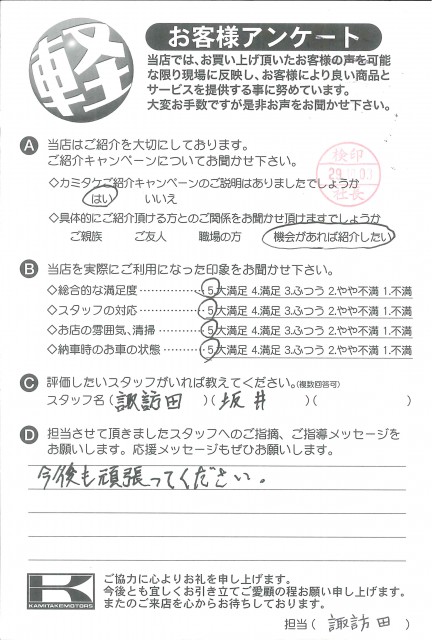 軽
お客様アンケート
当店では、お買い上げ頂いたお客様の声を可能
な限り現場に反映し、お客様により良い商品と
サービスを提供する事に努めています。
大変お手数ですが是非お声をお聞かせ下さい。
A 当店はご紹介を大切にしております。
ご紹介キャンペーンについてお聞かせ下さい。
検印
社長
◇カミタケご紹介キャンペーンのご説明はありましたでしょうか
はい いいえ
◇具体的にご紹介頂ける方とのご関係をお聞かせ頂けますでしょうか
ご親族 ご友人 職場の方 機会があれば紹介したい
B 当店を実際にご利用になった印象をお聞かせ下さい。
◇総合的な満足度 ………… 5.大満足 4.満足 3.ふつう 2.やや不満 1.不満
◇スタッフの対応 ………… 5.大満足 4.満足 3.ふつう 2.やや不満 1.不満
◇お店の雰囲気、清掃 …… 5.大満足 4.満足 3.ふつう 2.やや不満 1.不満
◇納車時のお車の状態 …… 5.大満足 4.満足 3.ふつう 2.やや不満 1.不満
C 評価したいスタッフがいれば教えてください。(複数回答可)
スタッフ名 ( 諏訪田 )( 坂井 )( )
D 担当させて頂きましたスタッフへのご指摘、ご指導メッセージを
お願いします。応援メッセージもぜひお願いします。
今後も頑張ってください。
K
KAMITAKE MOTORS
ご協力に心よりお礼を申し上げます。
今後とも宜しくお引き立てご愛顧の程お願い申し上げます。
またのご来店を心からお待ちしております。
担当 ( 諏訪田 )